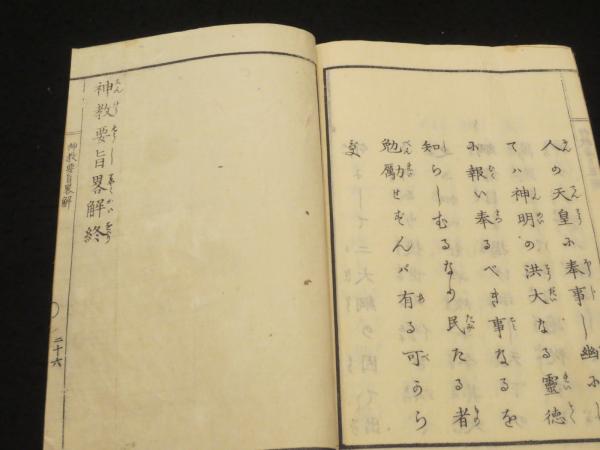 人の天皇ふ奉事し幽ふ
てハ神明の洪大なる靈徳
ふ報い奉るべき事なるを
知らしむるなり民たる者
勉厲せずんバ有る可から
ず
神教要旨畧解終
神教要旨畧解
二十六